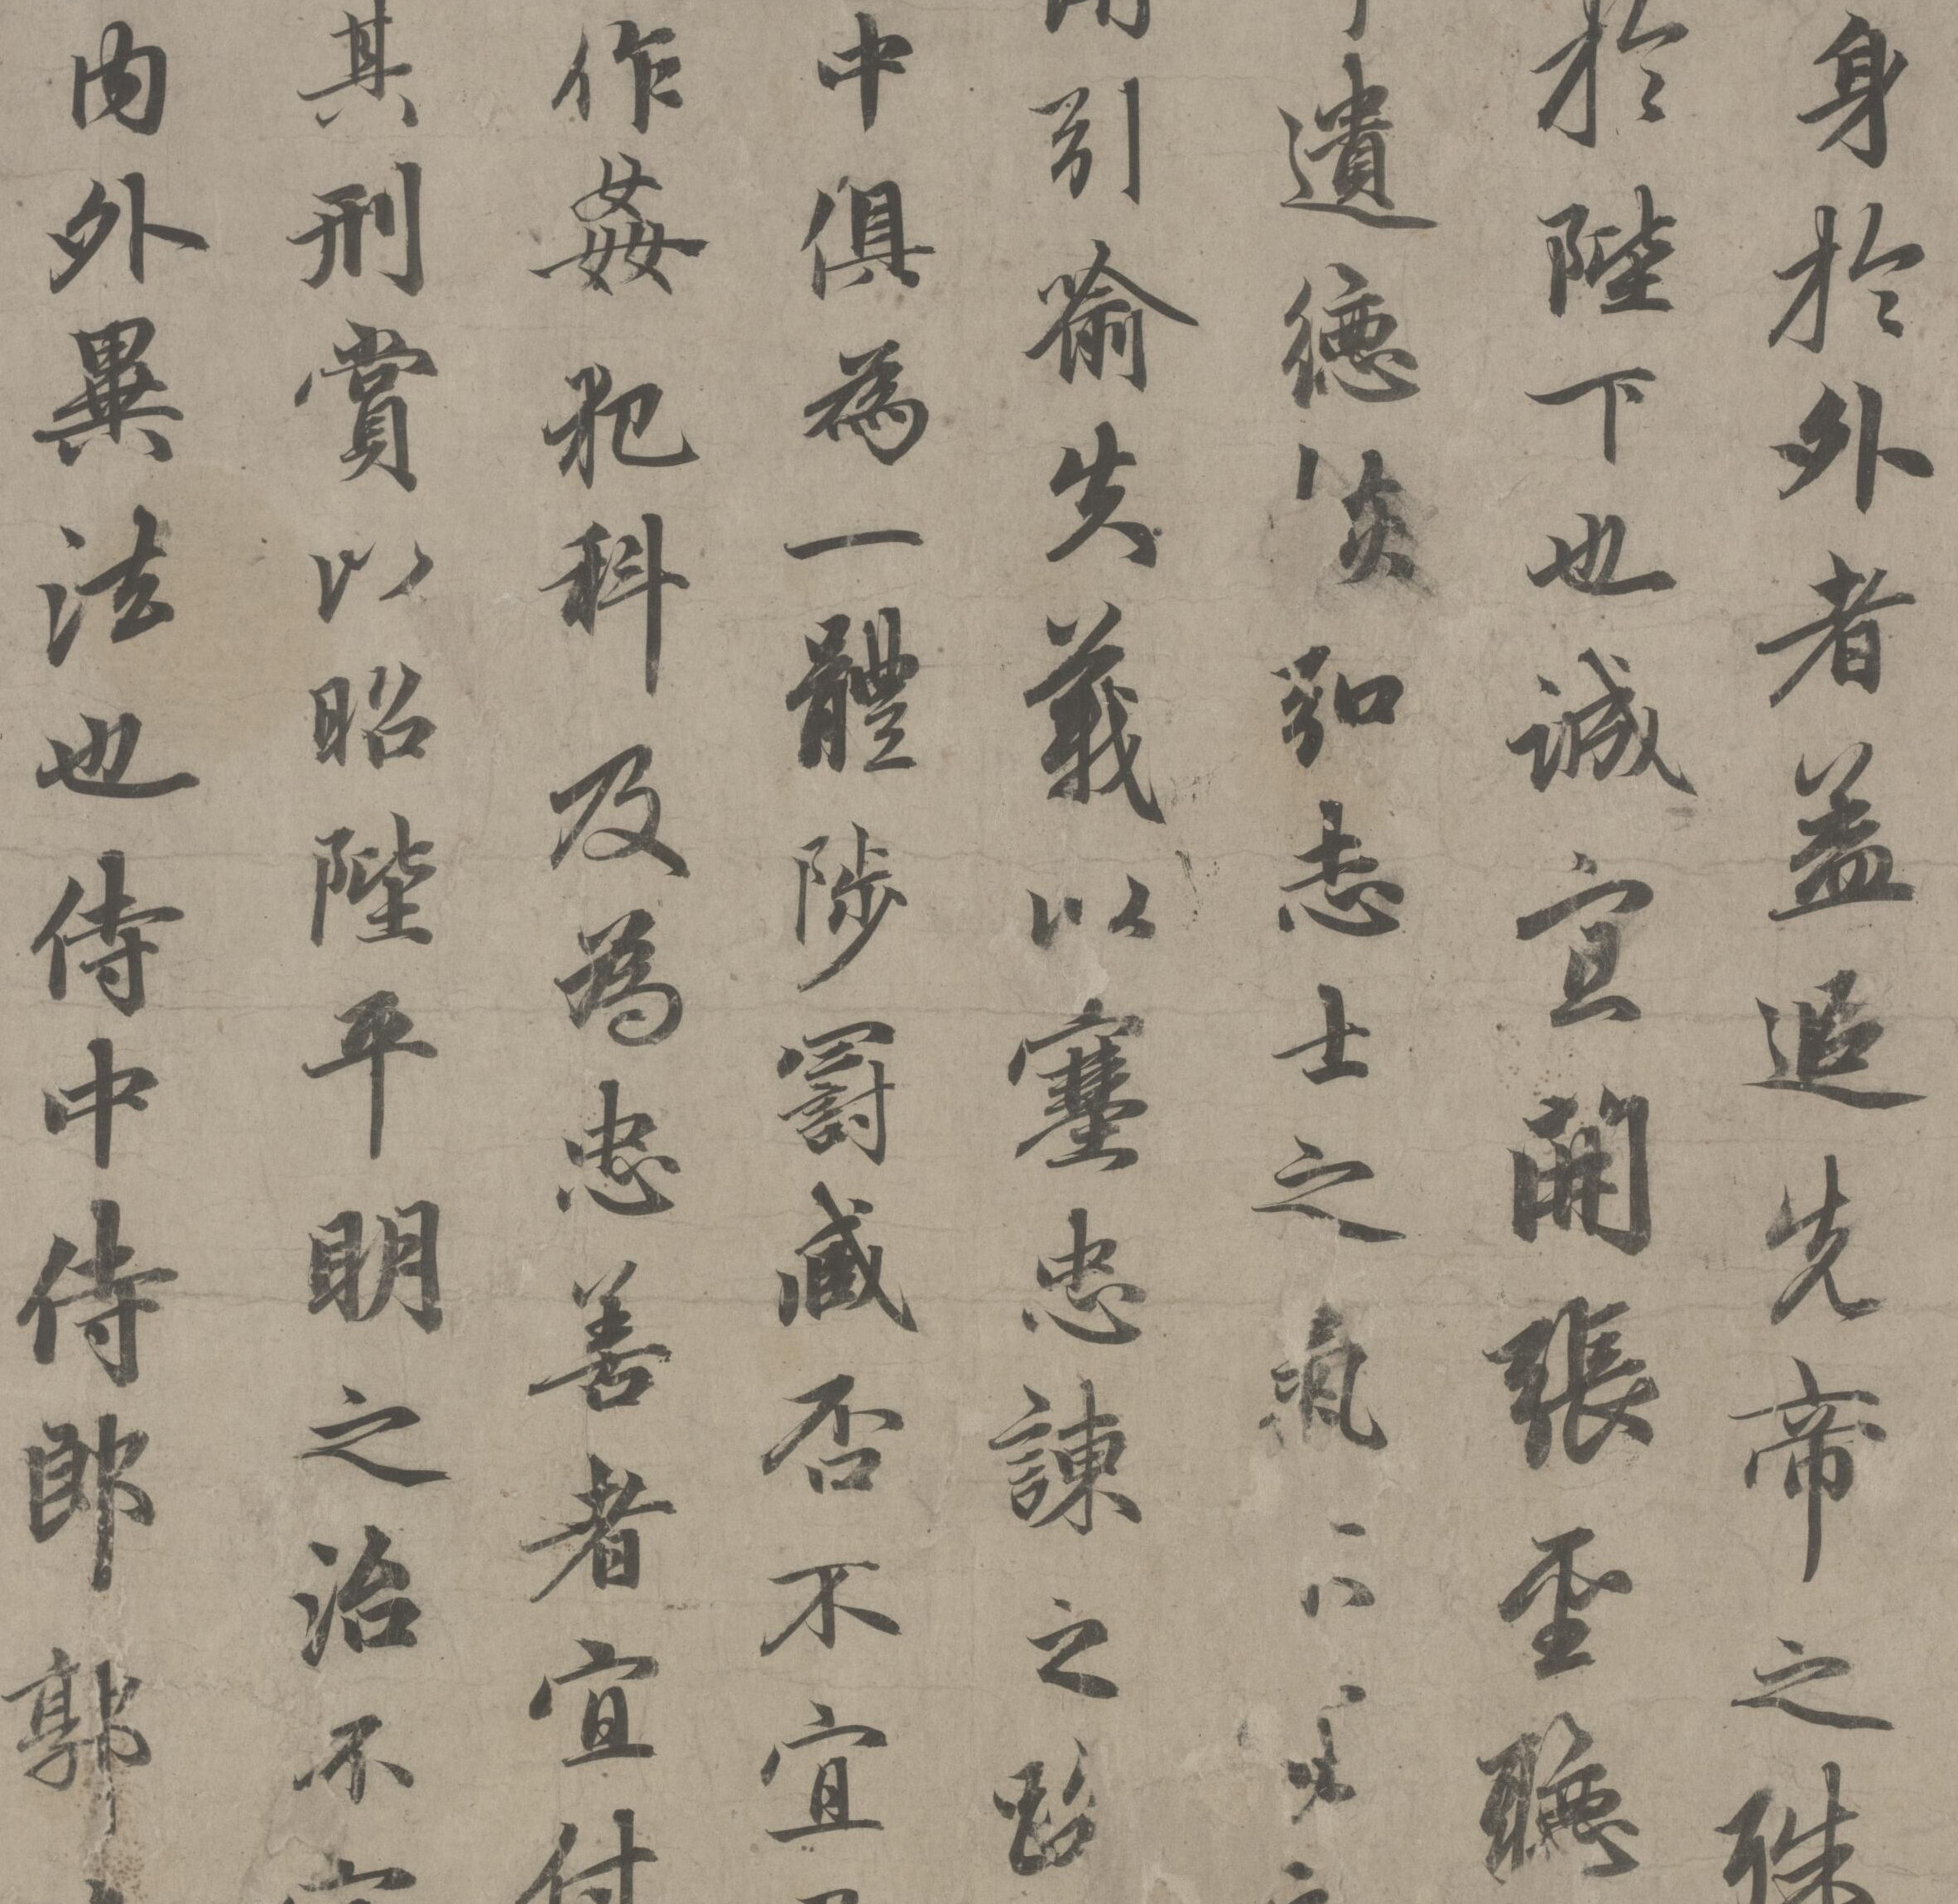 身於外者蓋追先帝之殊
於陛下也誠宜開張聖聽
遺德恢弘志士之氣不
引喻失義以塞忠諫之路
中俱為一體陟罰臧否不宜
作姦犯科及為忠善者宜付
其刑賞以昭陛平明之治不宜
內外異法也侍中侍郎郭